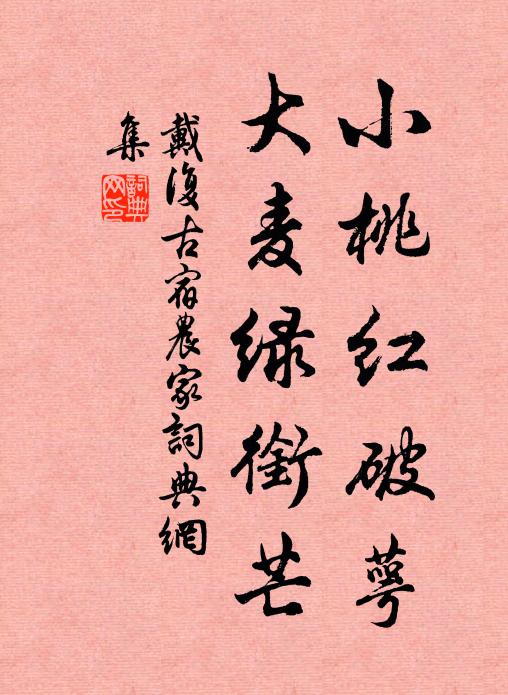 小桃红破萼
大麦绿衔芒
戴復古宿農家詞典網
集
詞典
网印